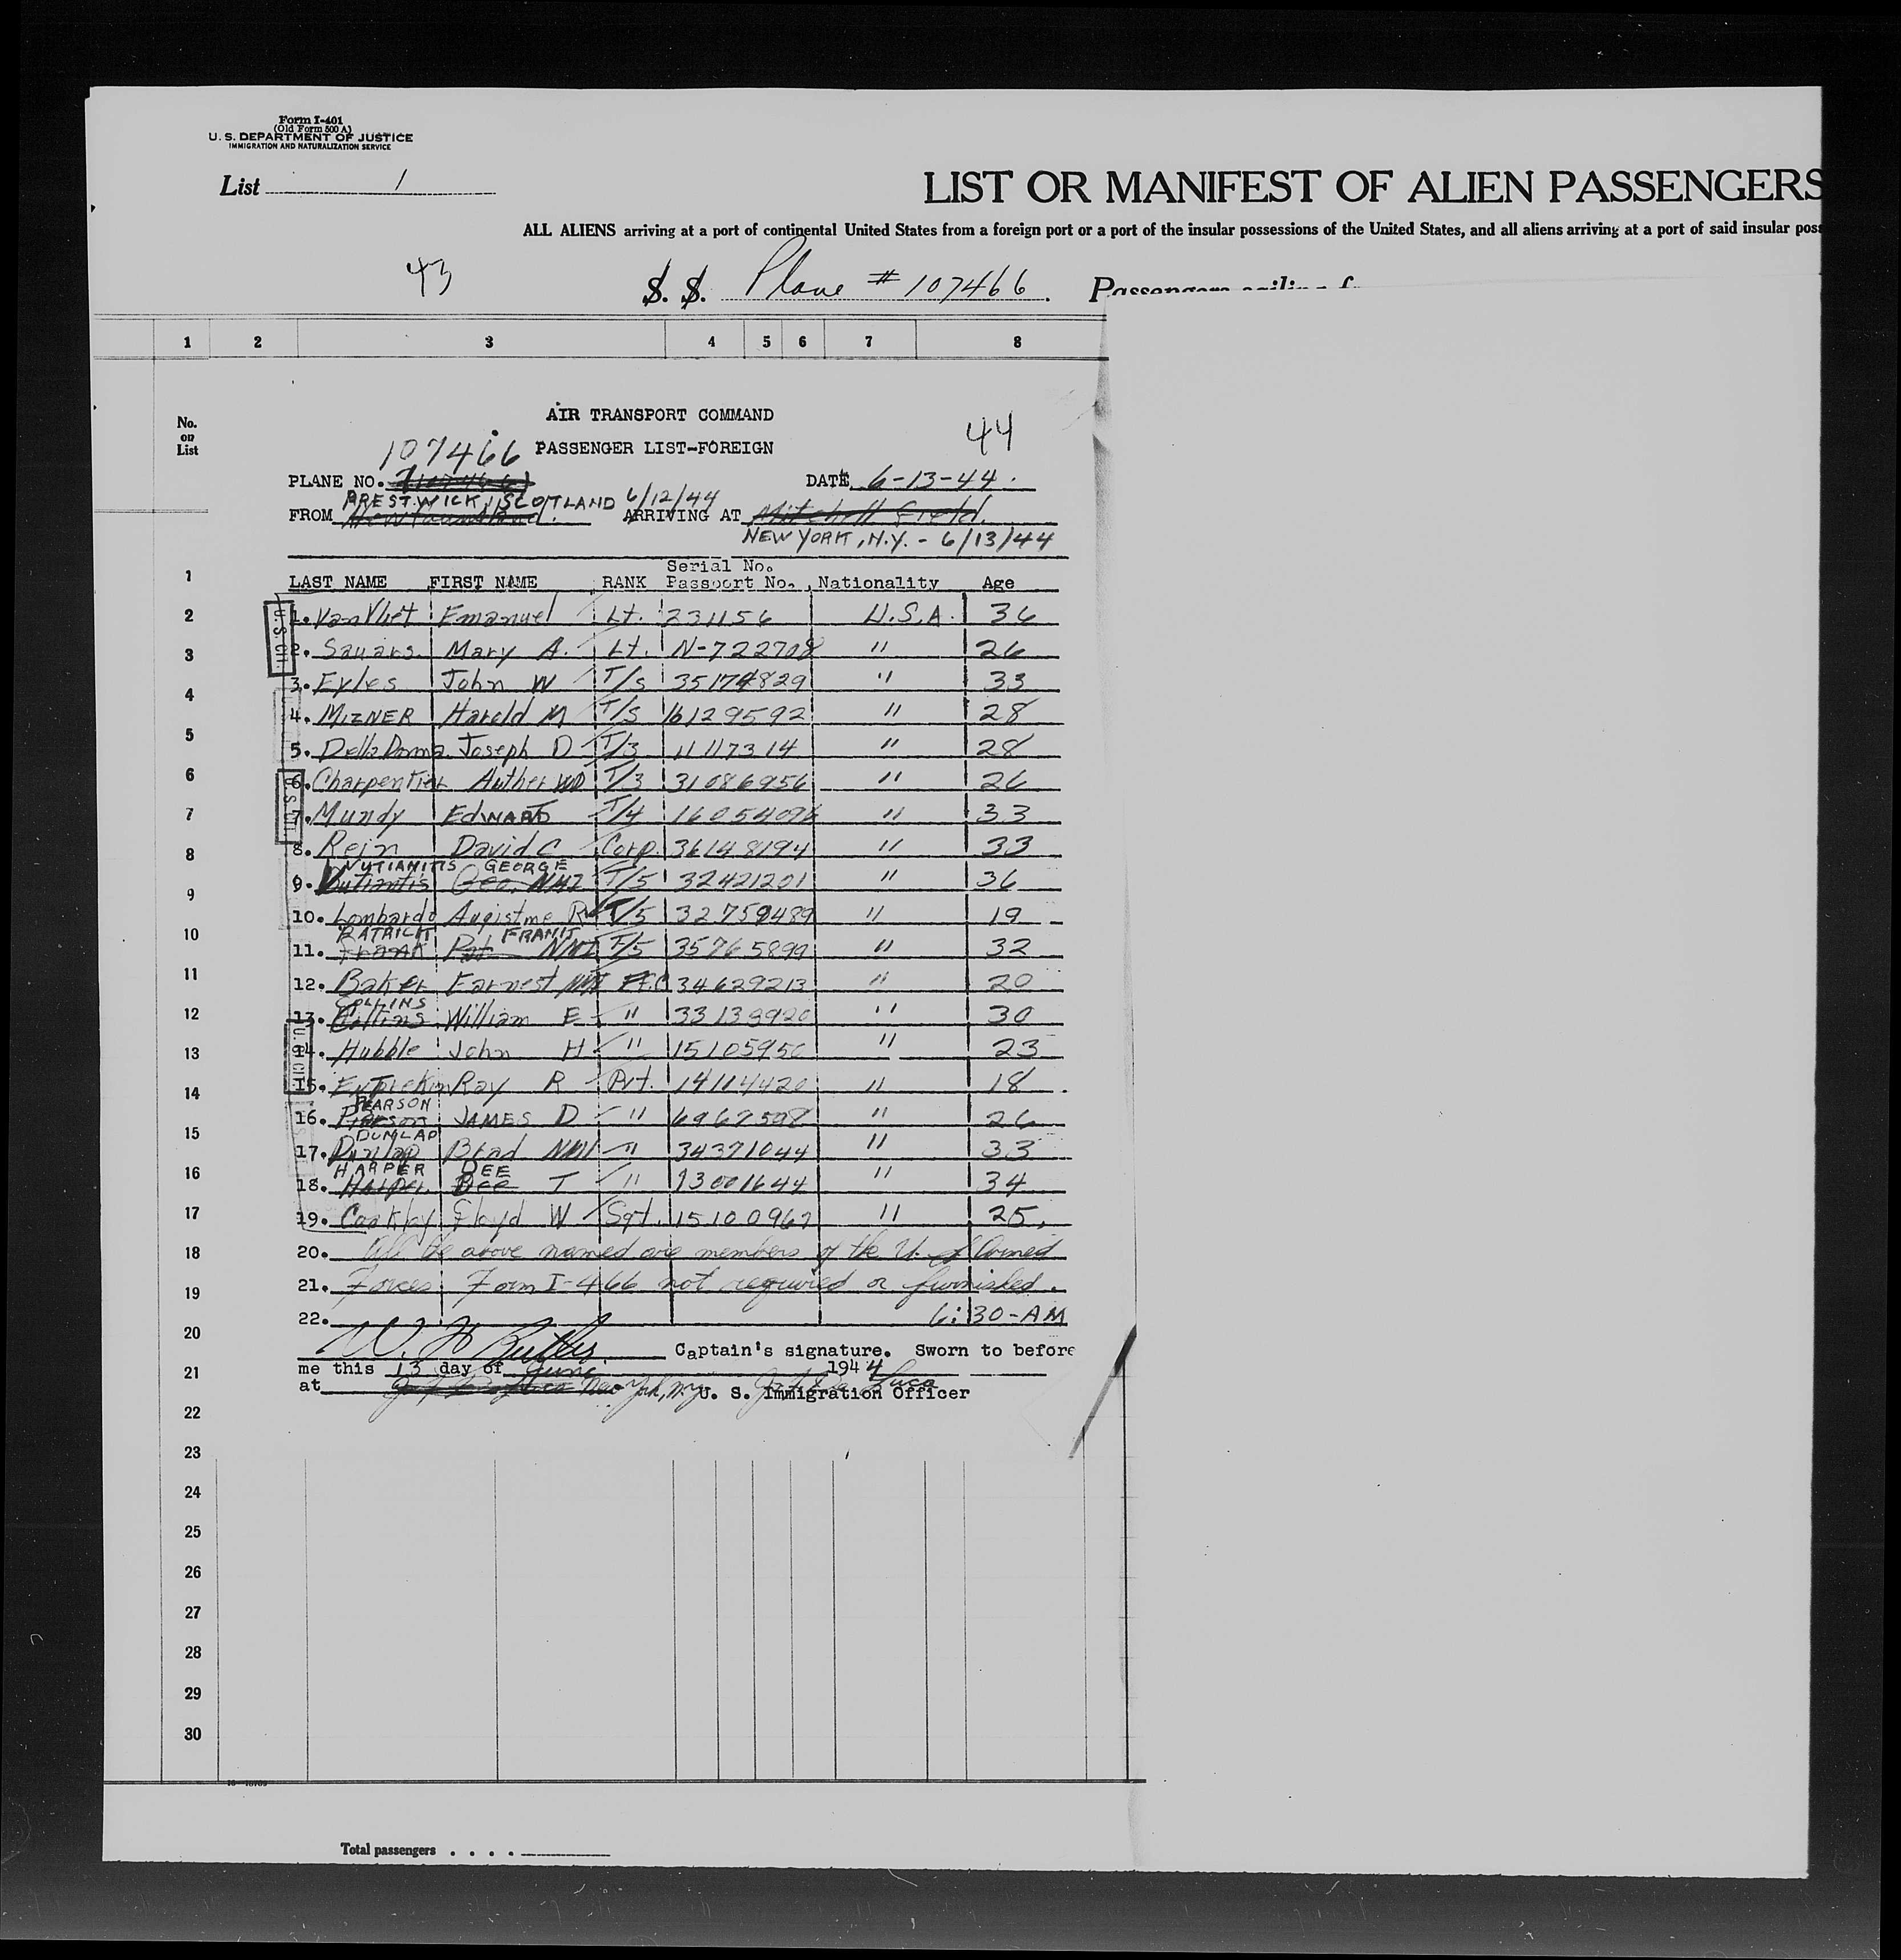 Form I-401
(Old Form 500 A)
U. S. DEPARTMENT OF JUSTICE
IMMIGRATION AND NATURALIZATION SERVICE
List 1
LIST OR MANIFEST OF ALIEN PASSENGERS
ALL ALIENS arriving at a port of continental United States from a foreign port or a port of the insular possessions of the United States, and all aliens arriving at a port of said insular poss
43
S. S. Plane # 107466.
Passengers sailing f
1 2 3 4 5 6 7 8
No. on List
AIR TRANSPORT COMMAND
44
107466 PASSENGER LIST-FOREIGN
PLANE NO. DATE 6-13-44.
PRESTWICK, SCOTLAND 6/12/44
FROM Newfoundland. ARRIVING AT Mitchell Field.
NEW YORK, N.Y. - 6/13/44
Serial No.
LAST NAME FIRST NAME RANK Passport No. Nationality Age
1. VanVliet Emanuel Lt. 231156 U.S.A. 36
2. Mary A. Lt. N-722708 " 26
3. Eyles John W T/5 35174829 " 33
4. MIZNER Harold M T/5 16129592 " 28
5. DellaDonna Joseph D T/3 11117314 " 28
6. Charpentier Auther T/3 31086956 " 26
7. Mundy EDWARD T/4 " 33
8. Rein David C Corp. 36148194 " 33
NUTIANITIS GEORGE
9. Geo. NMI T/5 32421201 " 36
10. Lombardo Augistme R T/5 32759489 " 19
PATRICK FRANK
11. Frank Pat NMI T/5 35765899 " 32
12. Baker Earnest NMI PFC 34629213 " 20
COLLINS
13. Collins William E " 33138920 " 30
14. Hubble John H " 15105950 " 23
15. Entrekin Ray R Pvt. 14114420 " 18
PEARSON
16. JAMES D " 6967598 " 26
DUNLAP
17. Dunlap Brad NMI " 34371044 " 33
HARPER DEE
18. Harper Dee T " 13001644 " 34
19. Coaklay Floyd W Sgt. 15100967 " 25.
20. All the above named are members of the U. S. Armed
21. Forces. Form I-466 not required or furnished.
22. 6:30-AM
Captain's signature. Sworn to before
me this 13 day of June 1944
at New York, N.Y. U. S. Immigration Officer
U.S. CIT.
U.S. CIT.
U.S. CIT.
1
2
3
4
5
6
7
8
9
10
11
12
13
14
15
16
17
18
19
20
21
22
23
24
25
26
27
28
29
30
Total passengers . . . .